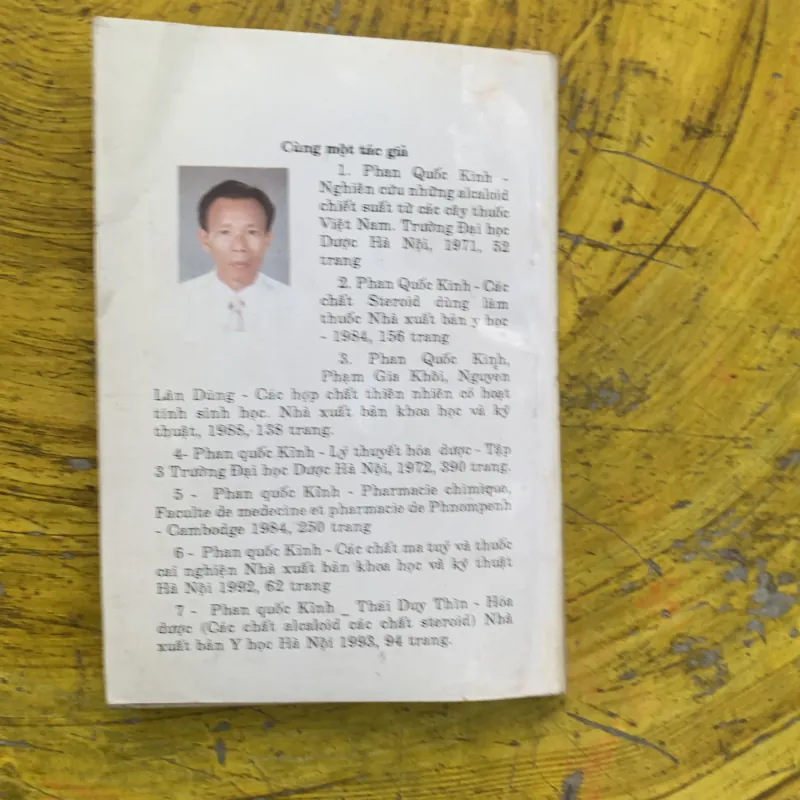 Cùng một tác giả
1. Phan Quốc Kinh -
Nghiên cứu những alcaloid
chiết suất từ các cây thuốc
Việt Nam. Trường Đại học
Dược Hà Nội, 1971, 52
trang
2. Phan Quốc Kinh - Các
chất Steroid dùng làm
thuốc Nhà xuất bản y học
- 1984, 156 trang
3. Phan Quốc Kinh,
Phạm Gia Khôi, Nguyen
Lân Dũng - Các hợp chất thiên nhiên có hoạt
tính sinh học. Nhà xuất bản khoa học và kỹ
thuật, 1988, 138 trang.
4- Phan quốc Kinh - Lý thuyết hóa dược - Tập
3 Trường Đại học Dược Hà Nội, 1972, 390 trang.
5 - Phan quốc Kinh - Pharmacie chimique,
Faculte de medecine et pharmacie de Phnompenh
- Cambodge 1984, 250 trang
6 - Phan quốc Kinh - Các chất ma tuý và thuốc
cai nghiện Nhà xuất bản khoa học và kỹ thuật
Hà Nội 1992, 62 trang
7 - Phan quốc Kinh _ Thái Duy Thìn - Hóa
dược (Các chất alcaloid các chất steroid) Nhà
xuất bản Y học Hà Nội 1993, 94 trang.